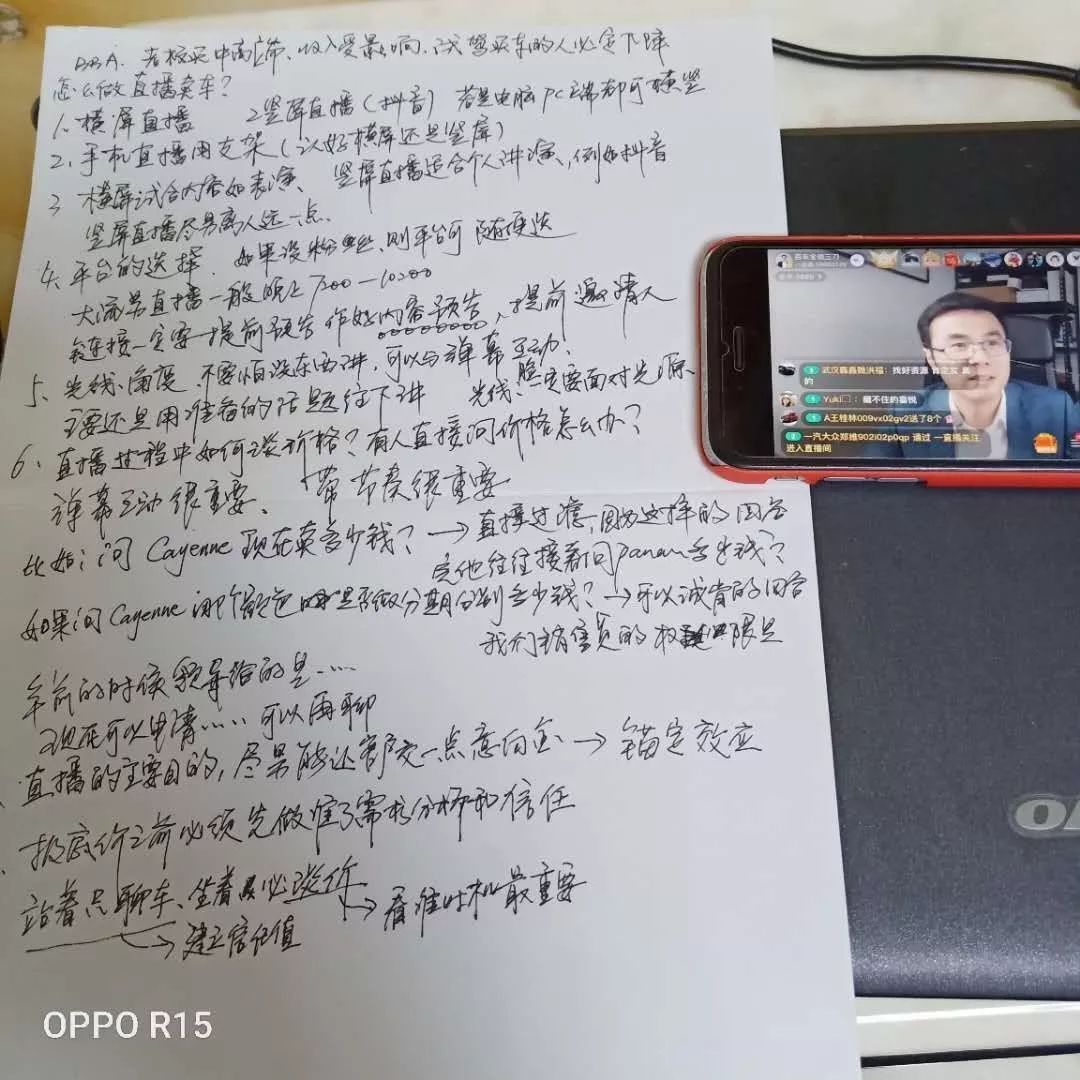 BBA. 老板买中高端、收入受影响、试驾买车的人必定下降
怎么做直播卖车?
1、横屏直播 2竖屏直播(抖音) 若是电脑PC端都可横竖
2、手机直播用支架(议好横屏还是竖屏)
3 横屏试合内容如表演、竖屏直播适合个人讲演,例如抖音
竖屏直播尽量离人远一点.
4、平台的选择. 如果没粉丝,则平台可随便选
大流量直播一般晚上7:00—10:00
链接一定要提前预告 作好内容预告,提前邀请人
5、光线、角度、不要怕没东西讲,可以与弹幕互动.
主要还是用准备的话题往下讲 光线、脸一定要面对光源.
6、直播过程中如何谈价格?有人直接问价格怎么办?
弹幕互动很重要、带节奏很重要
比如:问Cayenne现在卖多少钱?→直接过滤,因为这样的回答
完他往往接着问Panam多少钱?
如果问Cayenne 哪个颜色 是否做分期分别多少钱?→可以诚肯的回答
我们销售员的权限是
年前的时候领导给的是……
现在可以申请……可以再聊
直播的主要目的,尽量能让客户交一点意向金→锚定效应
报底价之前必须先做准了需求分析和信任
站着只聊车、坐着必谈价→看准时机最重要
→建立信任值
武汉鑫鑫魏洪福:找好资源 肯定发 真的
Yuki:藏不住的喜悦
A王桂林009vx02gv2送了8个
一汽大众郑维902i02p0qp 通过 一直播关注
进入直播间
OPPO R15